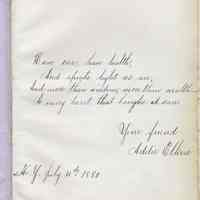 Have ease, have health,
And spirits light as air,
And more than wisdom, more than wealth
A merry heart that laughs at care
Your friend
Addie
N.Y. July 11th 1880